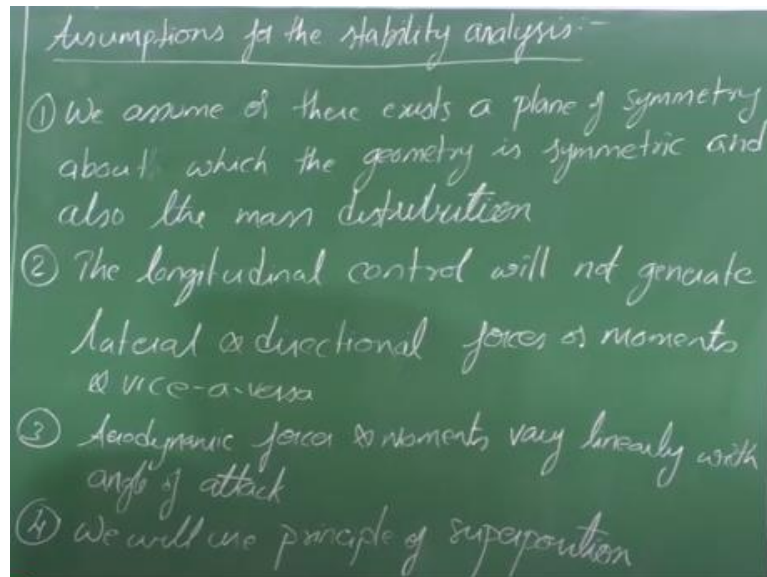 Assumptions for the stability analysis:-
① We assume of there exists a plane of symmetry
about which the geometry is symmetric and
also the mass distribution
② The longitudinal control will not generate
lateral & directional forces or moments
& vice-a-versa
③ Aerodynamic forces & moments vary linearly with
angle of attack
④ We will use principle of superposition